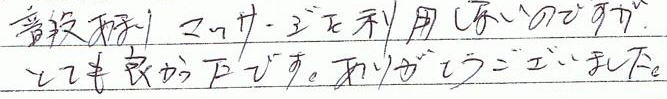 普段あまりマッサージを利用しないのですが、
とても良かったです。ありがとうございました。